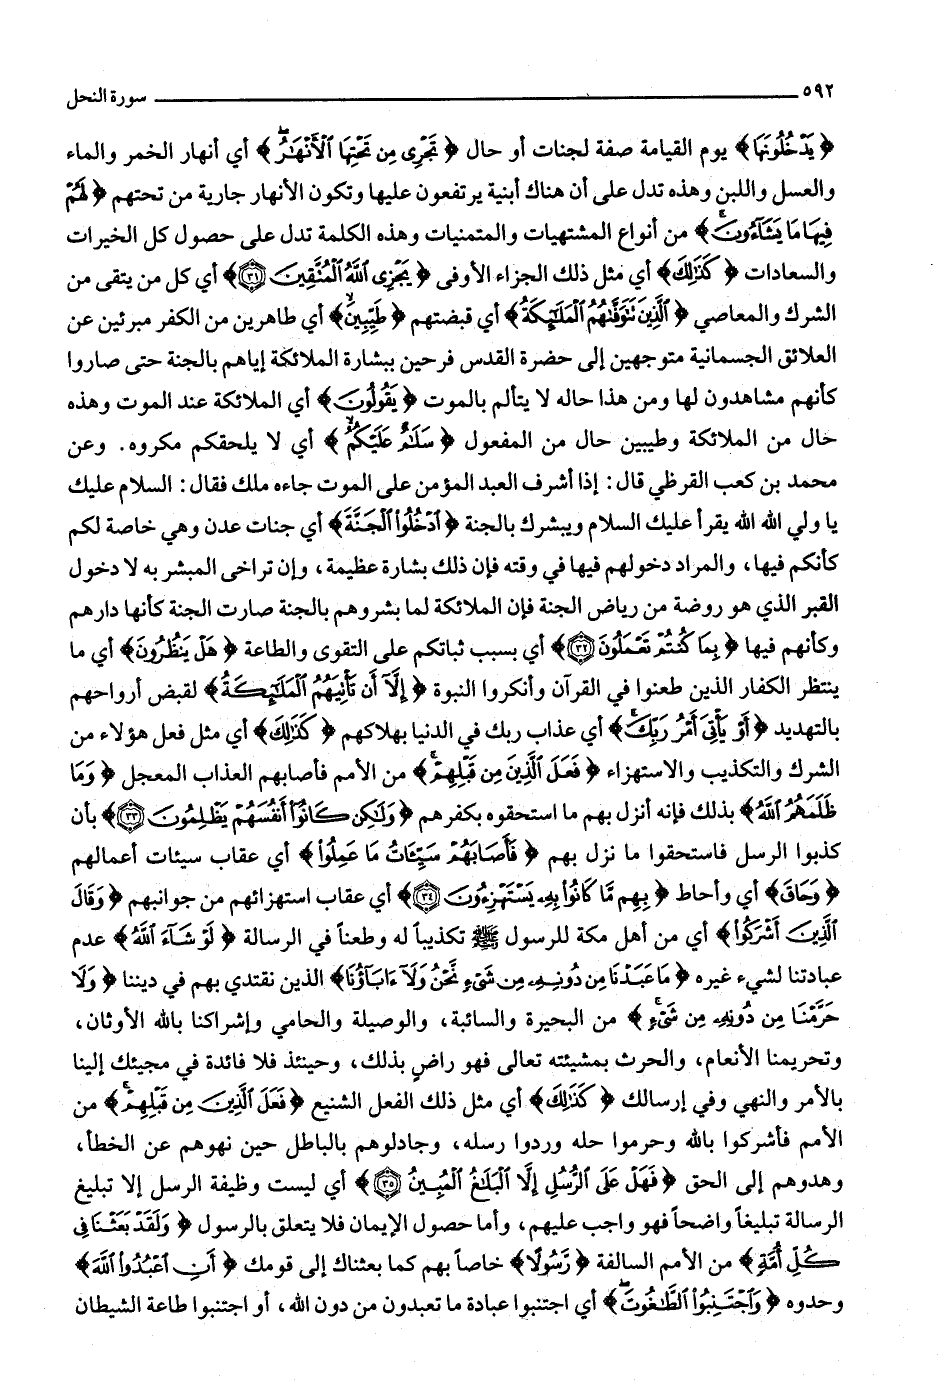 ٥٩٢ سورة النحل
﴿يَدْخُلُونَهَا﴾ يوم القيامة صفة لجنات أو حال ﴿تَجْرِي مِن تَحْتِهَا الْأَنْهَارُ﴾ أي أنهار الخمر والماء
والعسل واللبن وهذه تدل على أن هناك أبنية يرتفعون عليها وتكون الأنهار جارية من تحتهم ﴿لَهُمْ
فِيهَا مَا يَشَاءُونَ﴾ من أنواع المشتهيات والمتمنيات وهذه الكلمة تدل على حصول كل الخيرات
والسعادات ﴿كَذَٰلِكَ﴾ أي مثل ذلك الجزاء الأوفى ﴿يَجْزِي اللَّهُ الْمُتَّقِينَ ٣١﴾ أي كل من يتقى من
الشرك والمعاصي ﴿الَّذِينَ تَتَوَفَّاهُمُ الْمَلَائِكَةُ﴾ أي قبضتهم ﴿طَيِّبِينَ﴾ أي طاهرين من الكفر مبرئين عن
العلائق الجسمانية متوجهين إلى حضرة القدس فرحين ببشارة الملائكة إياهم بالجنة حتى صاروا
كأنهم مشاهدون لها ومن هذا حاله لا يتألم بالموت ﴿يَقُولُونَ﴾ أي الملائكة عند الموت وهذه
حال من الملائكة وطيبين حال من المفعول ﴿سَلَامٌ عَلَيْكُمُ﴾ أي لا يلحقكم مكروه. وعن
محمد بن كعب القرظي قال: إذا أشرف العبد المؤمن على الموت جاءه ملك فقال: السلام عليك
يا ولي الله الله يقرأ عليك السلام ويبشرك بالجنة ﴿ادْخُلُوا الْجَنَّةَ﴾ أي جنات عدن وهي خاصة لكم
كأنكم فيها، والمراد دخولهم فيها في وقته فإن ذلك بشارة عظيمة، وإن تراخى المبشر به لا دخول
القبر الذي هو روضة من رياض الجنة فإن الملائكة لما بشروهم بالجنة صارت الجنة كأنها دارهم
وكأنهم فيها ﴿بِمَا كُنتُمْ تَعْمَلُونَ ٣٢﴾ أي بسبب ثباتكم على التقوى والطاعة ﴿هَلْ يَنظُرُونَ﴾ أي ما
ينتظر الكفار الذين طعنوا في القرآن وأنكروا النبوة ﴿إِلَّا أَن تَأْتِيَهُمُ الْمَلَائِكَةُ﴾ لقبض أرواحهم
بالتهديد ﴿أَوْ يَأْتِيَ أَمْرُ رَبِّكَ﴾ أي عذاب ربك في الدنيا بهلاكهم ﴿كَذَٰلِكَ﴾ أي مثل فعل هؤلاء من
الشرك والتكذيب والاستهزاء ﴿فَعَلَ الَّذِينَ مِن قَبْلِهِمْ﴾ من الأمم فأصابهم العذاب المعجل ﴿وَمَا
ظَلَمَهُمُ اللَّهُ﴾ بذلك فإنه أنزل بهم ما استحقوه بكفرهم ﴿وَلَٰكِن كَانُوا أَنفُسَهُمْ يَظْلِمُونَ ٣٣﴾ بأن
كذبوا الرسل فاستحقوا ما نزل بهم ﴿فَأَصَابَهُمْ سَيِّئَاتُ مَا عَمِلُوا﴾ أي عقاب سيئات أعمالهم
﴿وَحَاقَ﴾ أي وأحاط ﴿بِهِم مَّا كَانُوا بِهِ يَسْتَهْزِءُونَ ٣٤﴾ أي عقاب استهزائهم من جوانبهم ﴿وَقَالَ
الَّذِينَ أَشْرَكُوا﴾ أي من أهل مكة للرسول ﷺ تكذيباً له وطعناً في الرسالة ﴿لَوْ شَاءَ اللَّهُ﴾ عدم
عبادتنا لشيء غيره ﴿مَا عَبَدْنَا مِن دُونِهِ مِن شَيْءٍ نَّحْنُ وَلَا ءَابَاؤُنَا﴾ الذين نقتدي بهم في ديننا ﴿وَلَا
حَرَّمْنَا مِن دُونِهِ مِن شَيْءٍ﴾ من البحيرة والسائبة، والوصيلة والحامي وإشراكنا بالله الأوثان،
وتحريمنا الأنعام، والحرث بمشيئته تعالى فهو راضٍ بذلك، وحينئذ فلا فائدة في مجيئك إلينا
بالأمر والنهي وفي إرسالك ﴿كَذَٰلِكَ﴾ أي مثل ذلك الفعل الشنيع ﴿فَعَلَ الَّذِينَ مِن قَبْلِهِمْ﴾ من
الأمم فأشركوا بالله وحرموا حله وردوا رسله، وجادلوهم بالباطل حين نهوهم عن الخطأ،
وهدوهم إلى الحق ﴿فَهَلْ عَلَى الرُّسُلِ إِلَّا الْبَلَاغُ الْمُبِينُ ٣٥﴾ أي ليست وظيفة الرسل إلا تبليغ
الرسالة تبليغاً واضحاً فهو واجب عليهم، وأما حصول الإيمان فلا يتعلق بالرسول ﴿وَلَقَدْ بَعَثْنَا فِي
كُلِّ أُمَّةٍ﴾ من الأمم السالفة ﴿رَّسُولًا﴾ خاصاً بهم كما بعثناك إلى قومك ﴿أَنِ اعْبُدُوا اللَّهَ﴾
وحدوه ﴿وَاجْتَنِبُوا الطَّاغُوتَ﴾ أي اجتنبوا عبادة ما تعبدون من دون الله، أو اجتنبوا طاعة الشيطان